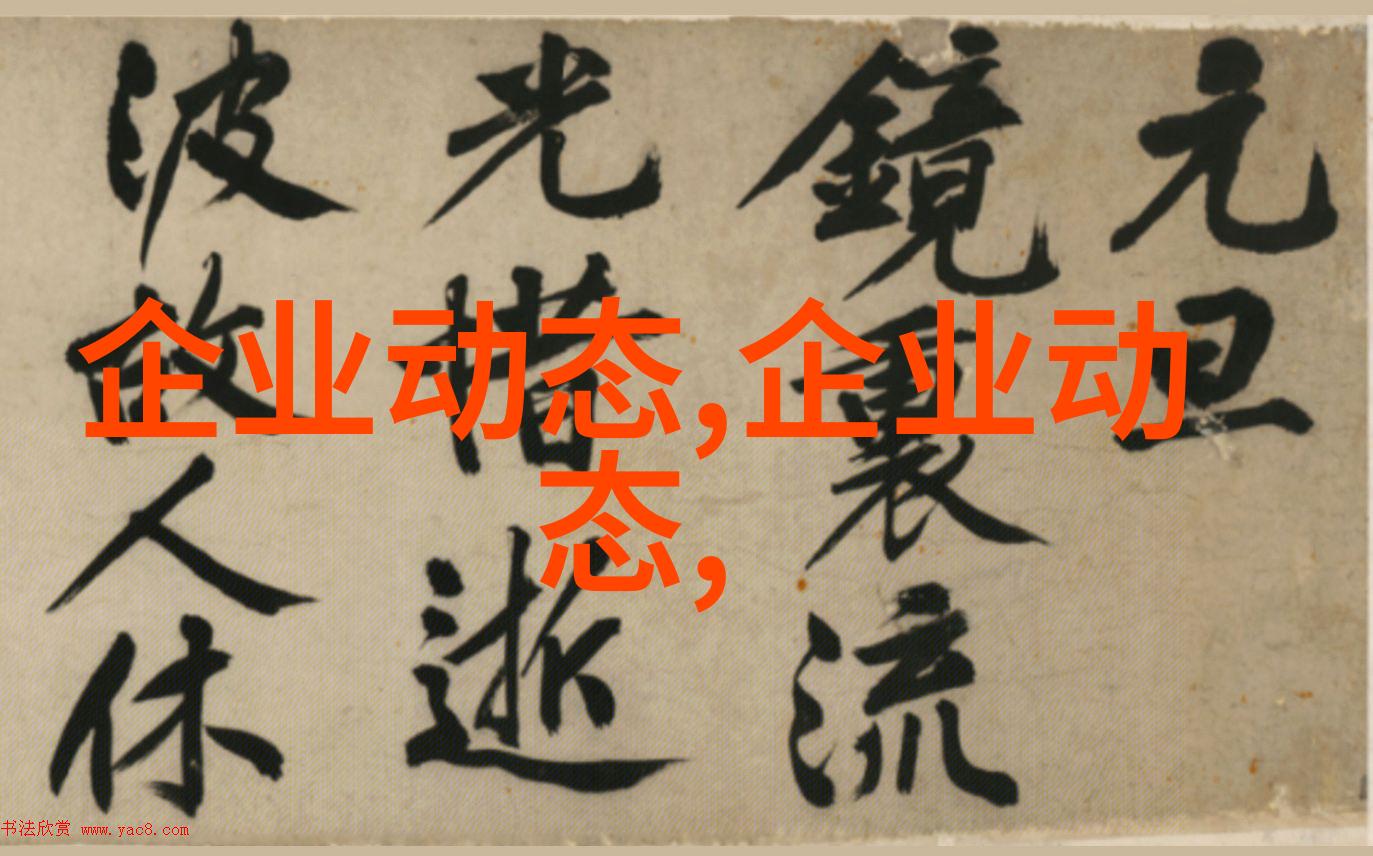 元旦
鏡裏流
光惜逝
波故人休
企业动态,企业动
态,
书法欣赏 www.yac8.com